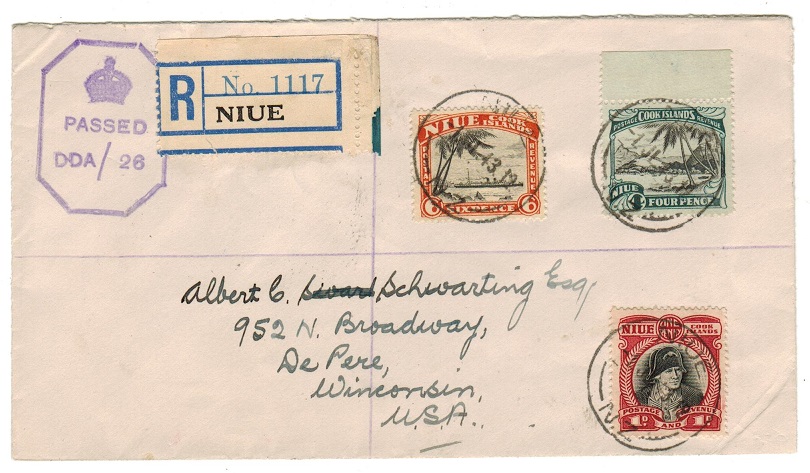 PASSED
D·DA / 26
R No. 1117
NIUE
NIUE COOK ISLANDS
POSTAGE REVENUE
6 SIXPENCE 6
POSTAGE COOK ISLANDS REVENUE
NIUE 4 FOUR PENCE
Albert C. Schwarting Esq,
952 N. Broadway,
De Pere,
Winconsin,
U.S.A.
NIUE COOK ISLANDS
POSTAGE AND REVENUE
1D 1D